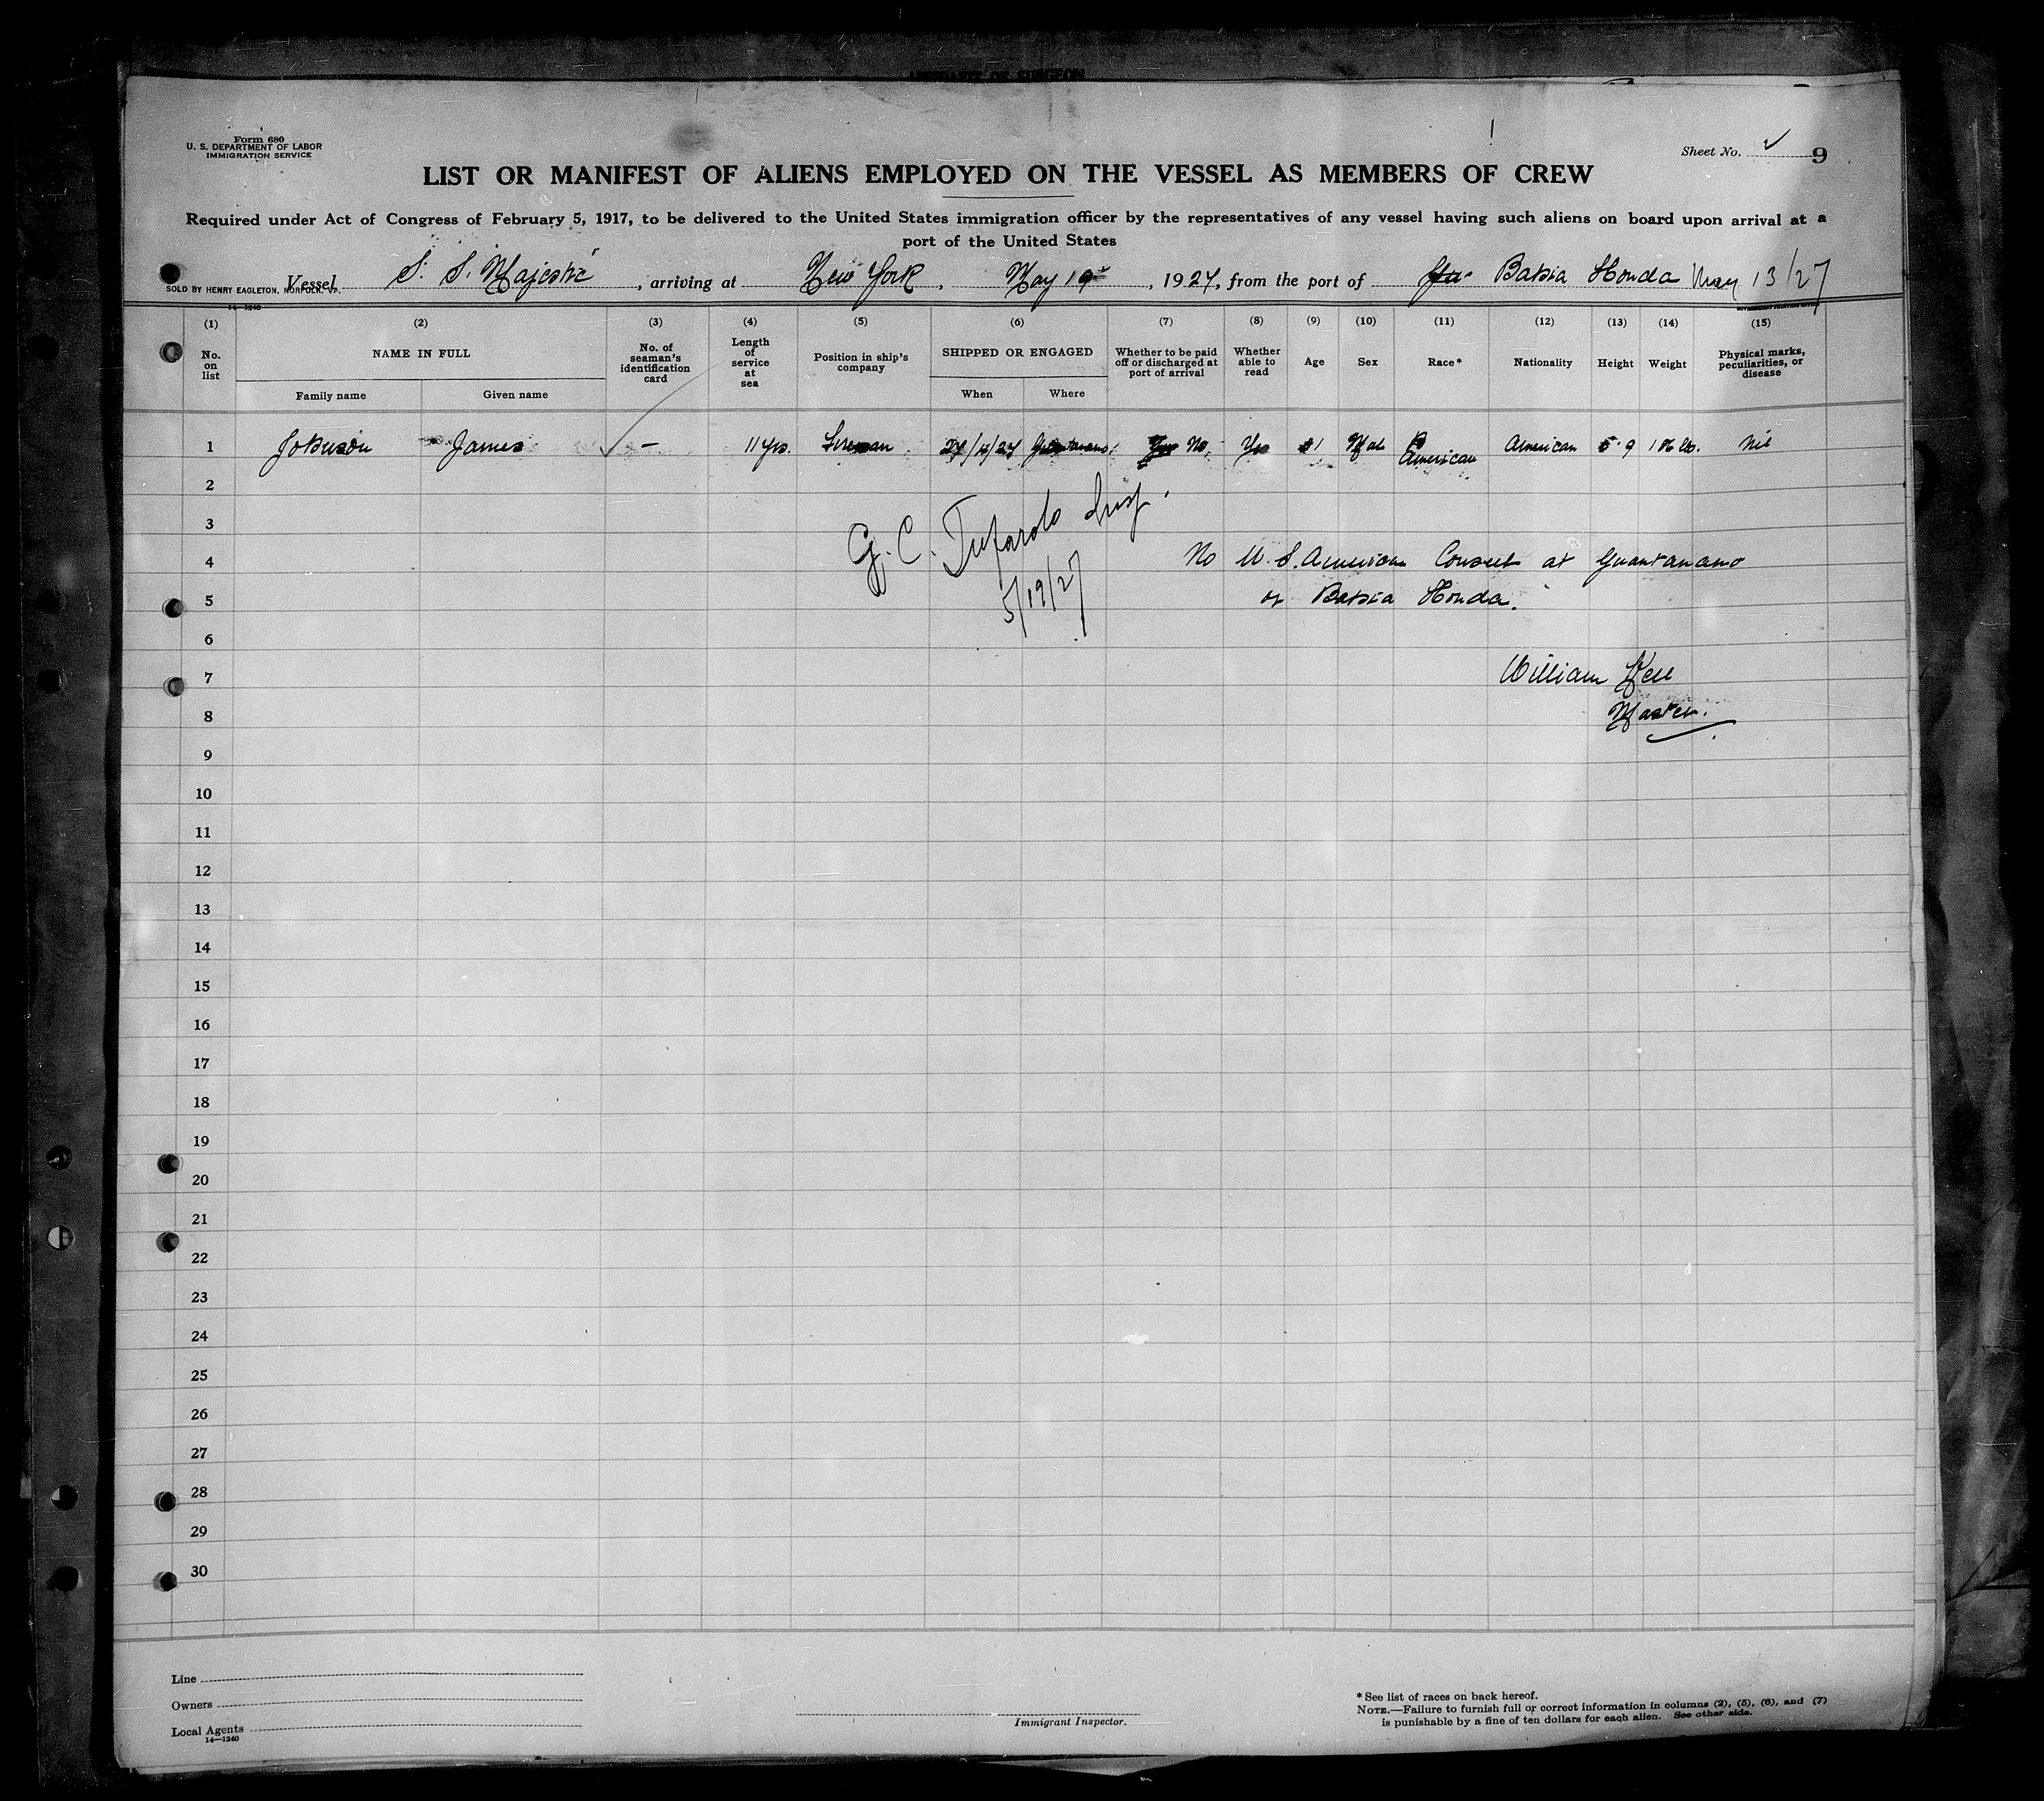 AFFIDAVIT OF SURGEON
Form 680
U. S. DEPARTMENT OF LABOR
IMMIGRATION SERVICE
Sheet No. 9
LIST OR MANIFEST OF ALIENS EMPLOYED ON THE VESSEL AS MEMBERS OF CREW
Required under Act of Congress of February 5, 1917, to be delivered to the United States immigration officer by the representatives of any vessel having such aliens on board upon arrival at a
port of the United States
Vessel S. S. Majestic, arriving at New York, May 19th, 1927, from the port of Bahia Honda May 13/27
SOLD BY HENRY EAGLETON, NORFOLK, VA.
14-1240
(1) (2) (3) (4) (5) (6) (7) (8) (9) (10) (11) (12) (13) (14) (15)
No. on list
NAME IN FULL
Family name
Given name
No. of seaman's identification card
Length of service at sea
Position in ship's company
SHIPPED OR ENGAGED
When
Where
Whether to be paid off or discharged at port of arrival
Whether able to read
Age
Sex
Race*
Nationality
Height
Weight
Physical marks, peculiarities, or disease
1 Johnson James — 11 yrs. Fireman 27/4/27 Guantanamo Yes No. Yes Mal American American 5 9 Nil
2
3
G. C. Tufarolo Insp.
5/19/27
4 No U. S. American Consul at Guantanamo
5 or Bahia Honda.
6
7 William Kell
8 Master.
9
10
11
12
13
14
15
16
17
18
19
20
21
22
23
24
25
26
27
28
29
30
Line
Owners
Local Agents
14—1240
Immigrant Inspector.
* See list of races on back hereof.
NOTE.—Failure to furnish full or correct information in columns (2), (5), (6), and (7)
is punishable by a fine of ten dollars for each alien. See other side.